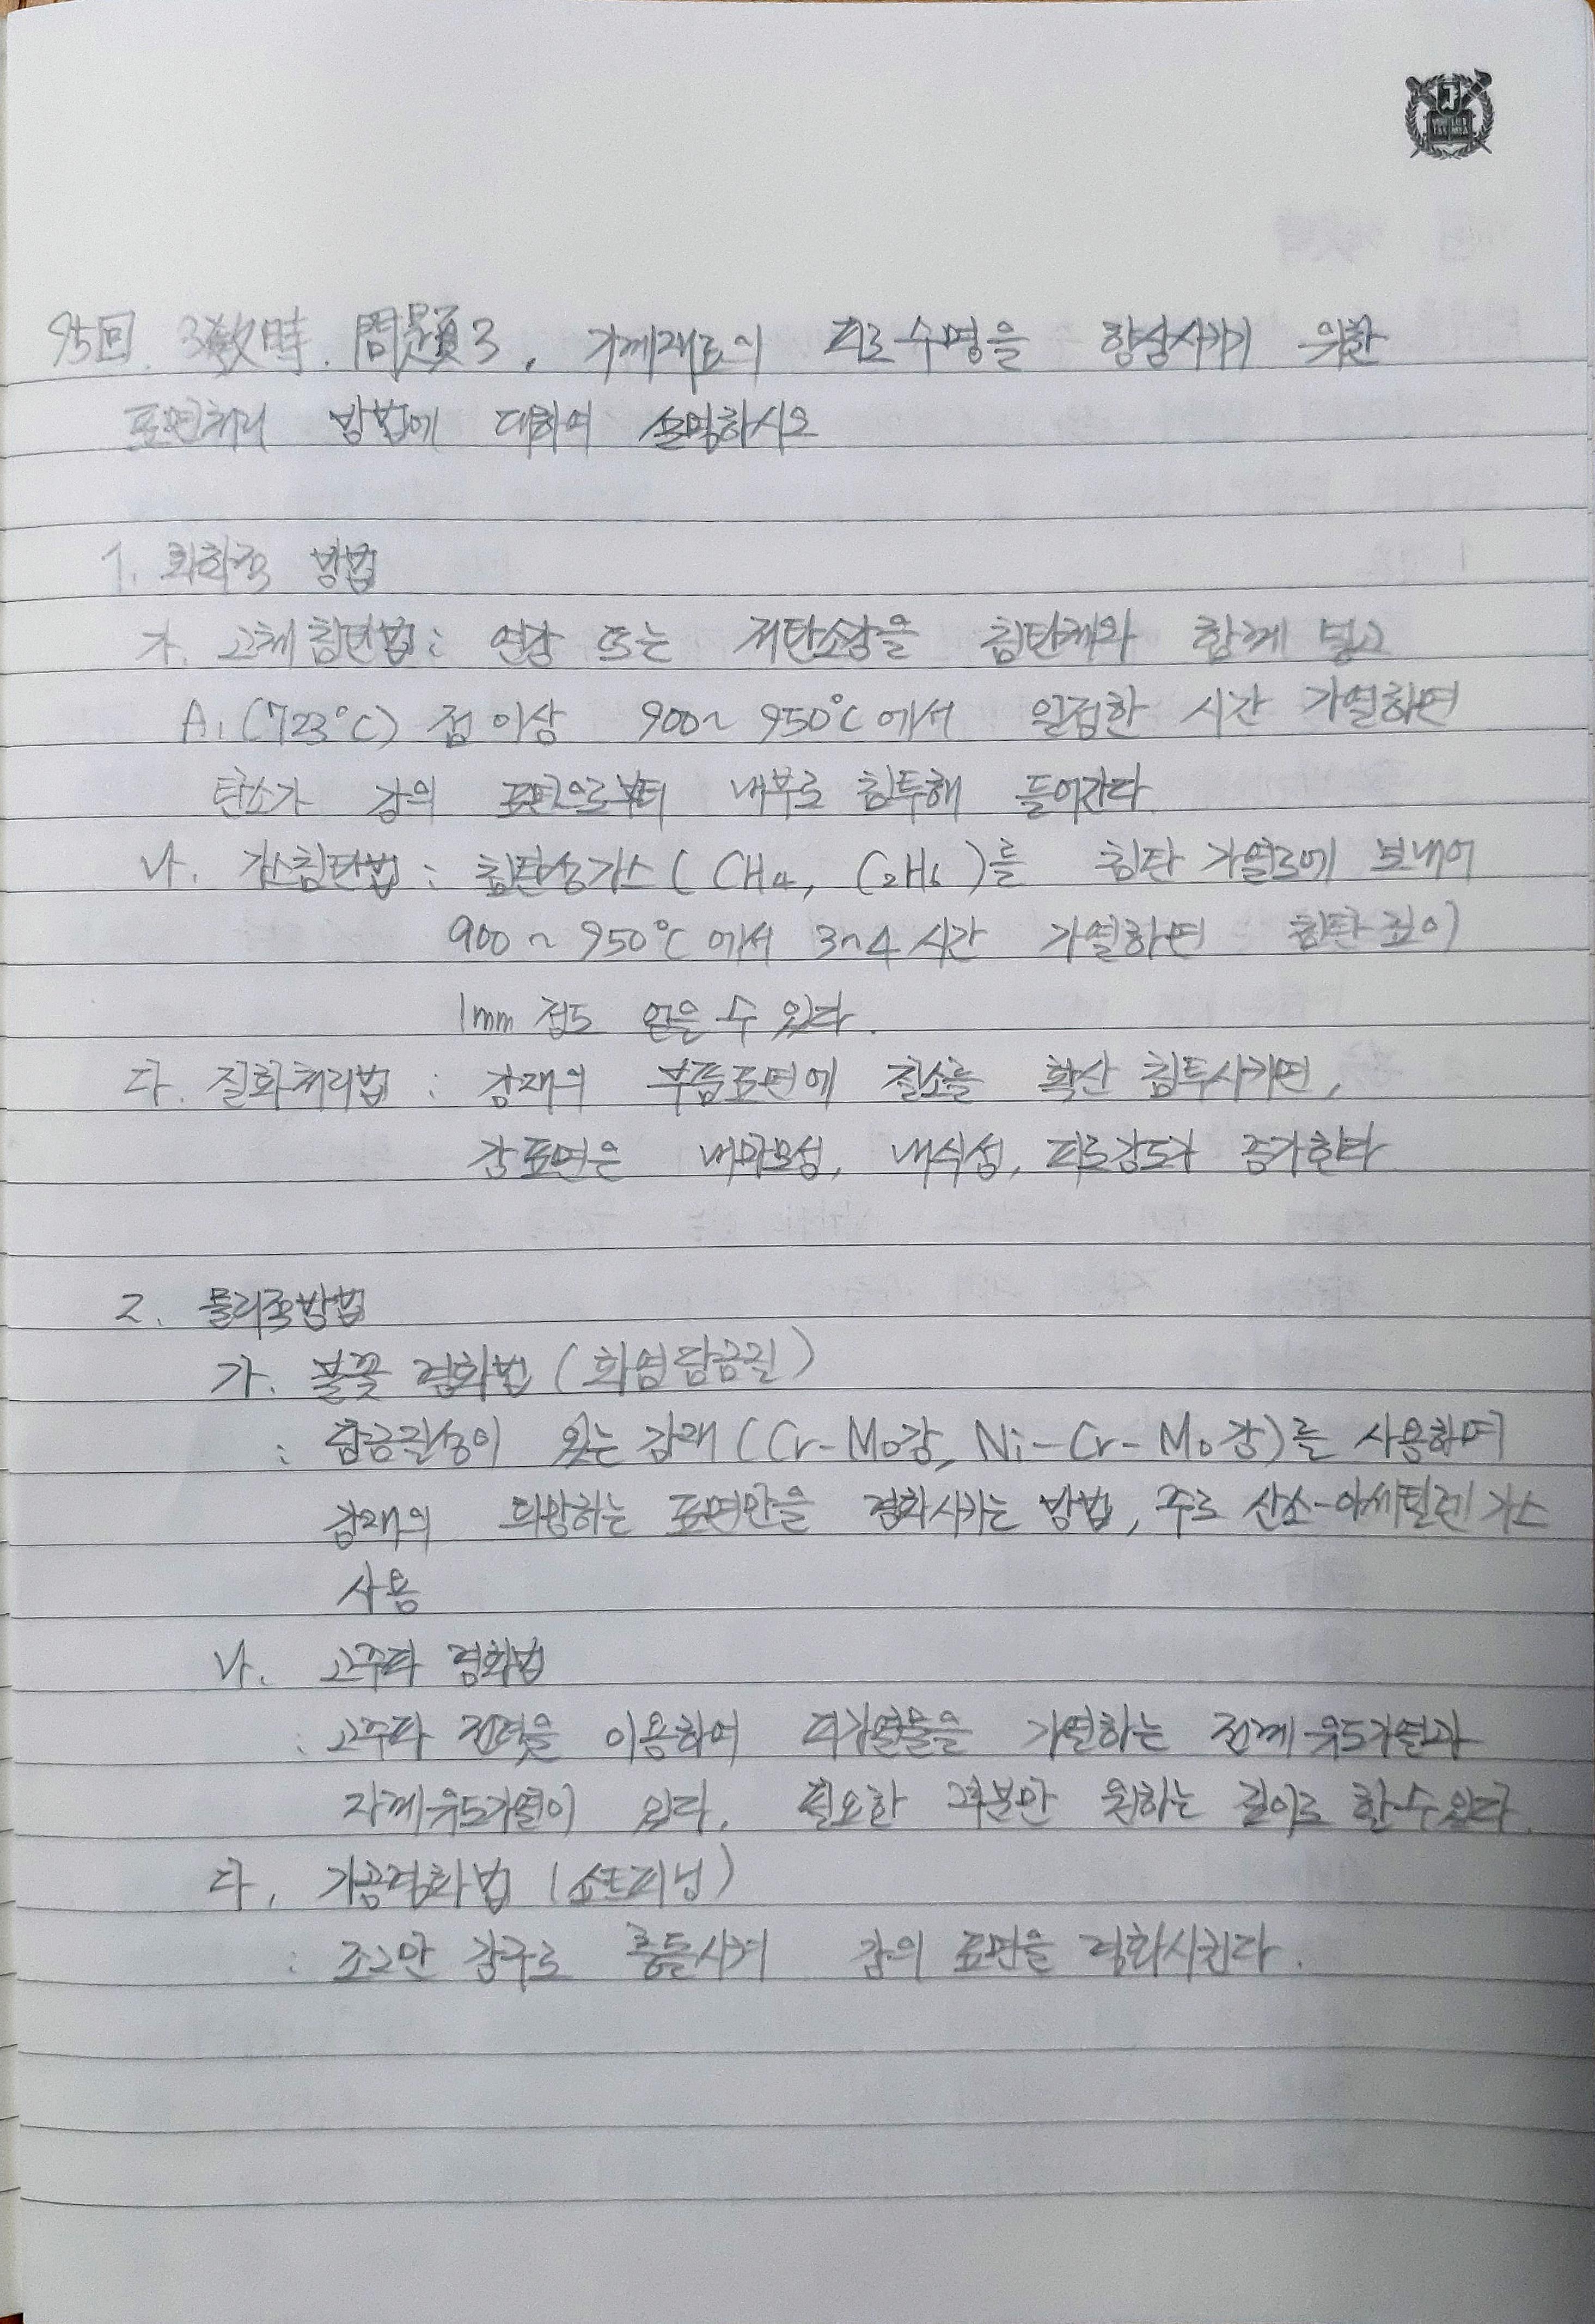 95回. 3敎時. 問題3. 기계재료의 피로수명을 향상시키기 위한
표면처리 방법에 대하여 설명하시오
1. 화학적 방법
가. 고체침탄법: 연강 또는 저탄소강을 침탄제와 함께 넣고
A₁(723℃) 점 이상 900~950℃에서 일정한 시간 가열하면
탄소가 강의 표면으로부터 내부로 침투해 들어간다.
나. 가스침탄법: 침탄성가스(CH₄, C₂H₆)를 침탄 가열로에 보내어
900~950℃에서 3~4시간 가열하면 침탄깊이
1mm 정도 얻을 수 있다.
다. 질화처리법: 강재의 부품표면에 질소를 확산 침투시키면,
강표면은 내마모성, 내식성, 피로강도가 증가한다
2. 물리적방법
가. 불꽃 경화법(화염담금질)
: 담금질성이 있는 강재(Cr-Mo강, Ni-Cr-Mo강)를 사용하며
강재의 희망하는 표면만을 경화시키는 방법, 주로 산소-아세틸렌 가스
사용
나. 고주파 경화법
: 고주파 전력을 이용하여 피가열물을 가열하는 전계유도가열과
자계유도가열이 있다. 필요한 부분만 원하는 깊이로 할수있다.
다. 가공경화법(쇼트피닝)
: 조그만 강구로 충돌시켜 강의 표면을 경화시킨다.